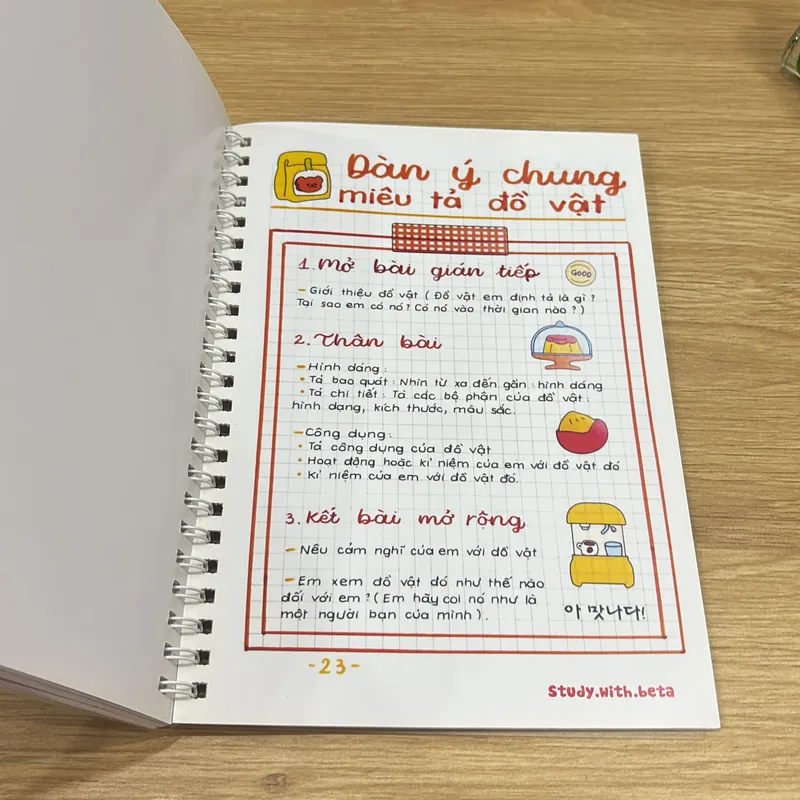 Dàn ý chung
miêu tả đồ vật
1. Mở bài gián tiếp
GOOD
- Giới thiệu đồ vật ( Đồ vật em định tả là gì ?
Tại sao em có nó? Có nó vào thời gian nào ? )
2. Thân bài
- Hình dáng :
• Tả bao quát : Nhìn từ xa đến gần : hình dáng
• Tả chi tiết : Tả các bộ phận của đồ vật :
hình dạng, kích thước, màu sắc.
- Công dụng :
• Tả công dụng của đồ vật
• Hoạt động hoặc kỉ niệm của em với đồ vật đó
• Kỉ niệm của em với đồ vật đó.
3. Kết bài mở rộng
- Nêu cảm nghĩ của em với đồ vật
- Em xem đồ vật đó như thế nào
đối với em ? ( Em hãy coi nó như là
một người bạn của mình ) .
아 맛나다!
-23-
Study.with.beta